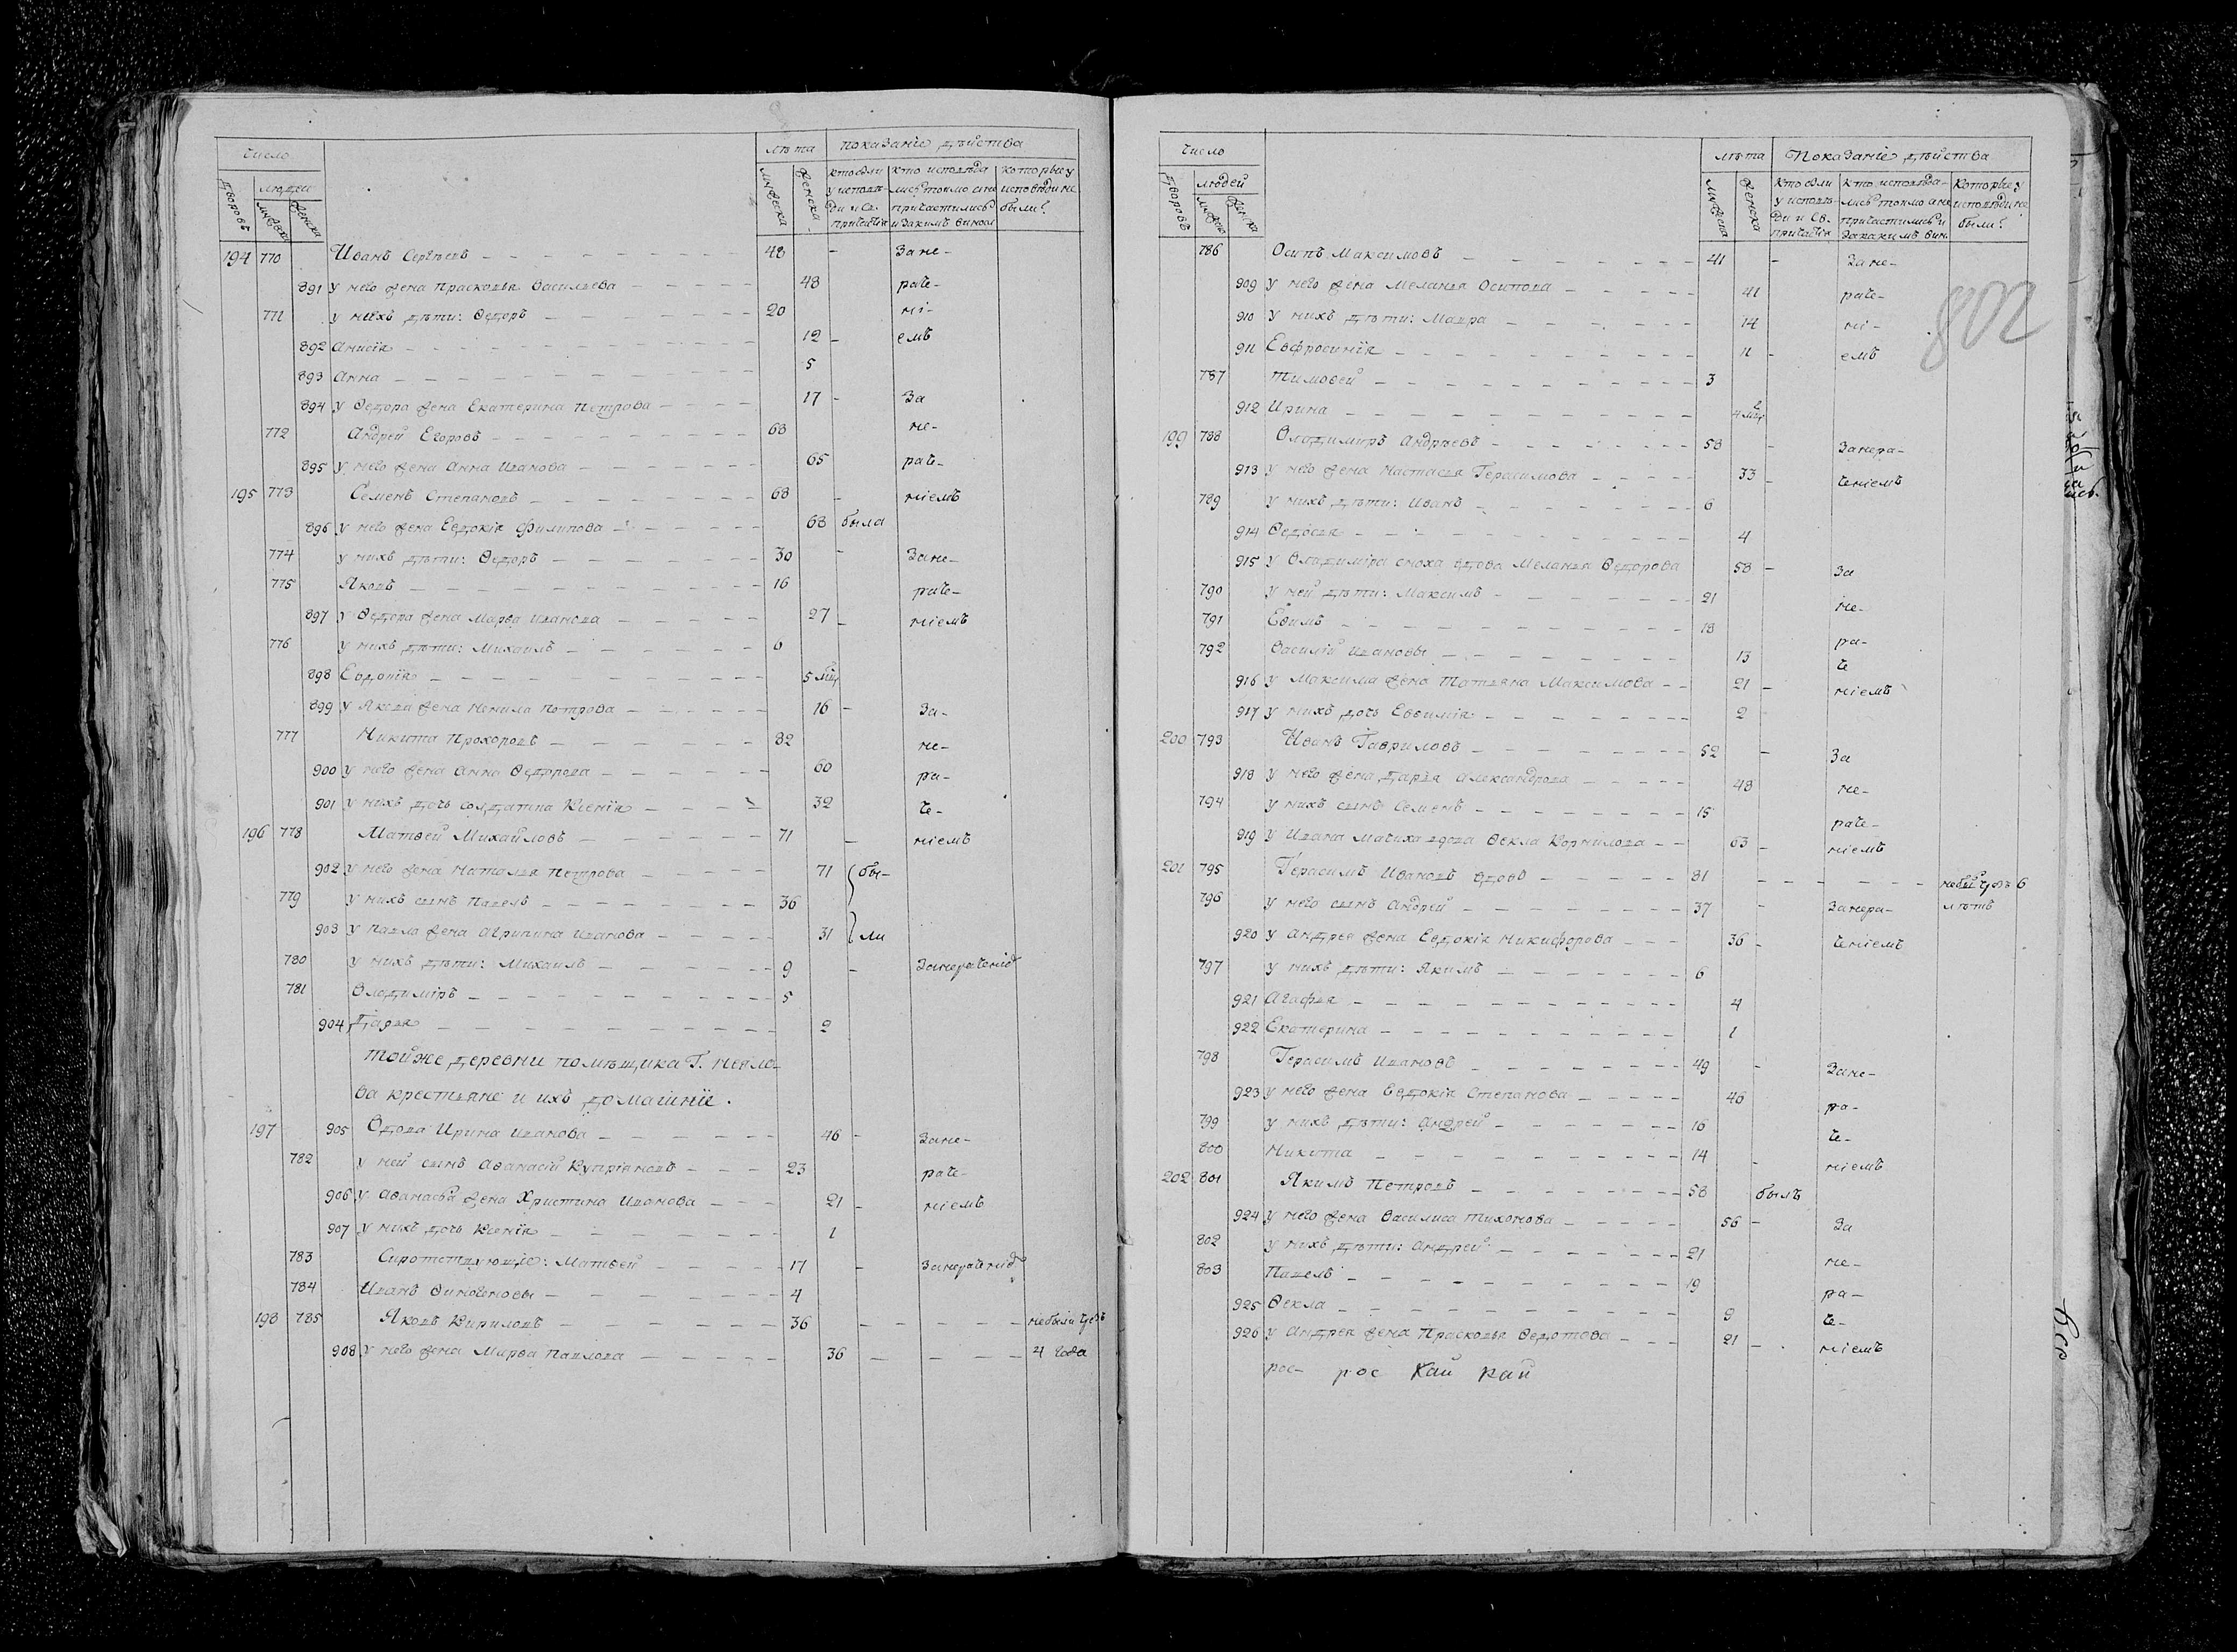 число лѣта показанiе дѣйства
дворовъ людей мужеска женска мужеска женска
кто были у исповѣди и св. причастiя
кто исповѣдались токмо а не причастились и за какимъ виномъ
которые у исповѣди не были
194 770 Иванъ Сергѣевъ 48 - За не-
891 у него жена Прасковья Васильева 48 раче-
771 у нихъ дѣти: Ѳедоръ 20 нi-
892 Анисiя 12 - емъ
893 Анна 5
894 у Ѳедора жена Екатерина Петрова 17 - За
772 Андрей Егоровъ 68 не-
895 у него жена Анна Иванова 65 раче-
195 773 Семенъ Степановъ 68 - нiемъ
896 у него жена Евдокiя Филипова 68 была
774 у нихъ дѣти: Ѳедоръ 30 - Зане-
775 Яковъ 16 раче-
897 у Ѳедора жена Марѳа Иванова 27 - нiемъ
776 у нихъ дѣти: Михаилъ 6
898 Евдокiя 5 мцъ
899 у Якова жена Ненила Петрова 16 - За-
777 Никита Прохоровъ 82 не-
900 у него жена Анна Ѳедорова 60 ра-
901 у нихъ дочь солдатка Ксенiя 32 че-
196 778 Матвей Михайловъ 71 - нiемъ
902 у него жена Наталья Петрова 71 бы-
779 у нихъ сынъ Павелъ 36
903 у Павла жена Агрипина Иванова 31 ли
780 у нихъ дѣти: Михаилъ 9 - Занераченiе
781 Владимiръ 5
904 Дарья 2
той же деревни помѣщика Г.
ва крестьяне и ихъ домашнiе.
197 905 Вдова Ирина Иванова 46 - Зане-
782 у ней сынъ Аѳанасiй Купрiяновъ 23 раче-
906 у Аѳанасья жена Христина Иванова 21 - нiемъ
907 у нихъ дочь Ксенiя 1
783 Сиротствующiе: Матвей 17 - Занераченiе
784 Иванъ 4
198 785 Яковъ Кириловъ 36 - небыли чрезъ
908 у него жена Марѳа Павлова 36 - 4 года
число лѣта Показанiе дѣйства
дворовъ людей мужеска женска мужеска женска
кто были у исповѣди и св. причастiя
кто исповѣдались токмо а не причастились и за какимъ вин.
которые у исповѣди не были
802
786 Осипъ Максимовъ 41 - За не-
909 у него жена Меланья Осипова 41 раче-
910 у нихъ дѣти: Мавра 14 нi-
911 Евфросинiя 11 - емъ
787 Тимоѳей 3
912 Ирина 4 мца
199 788 Владимiръ Андрѣевъ 58 - Занера-
913 у него жена Настасья Герасимова 33 - ченiемъ
789 у нихъ дѣти: Иванъ 6
914 Ѳедосья 4
915 у Владимiра сноха вдова Меланья Ѳедорова 58 - За
790 у ней дѣти: Максимъ 21 не-
791 Ефимъ 18 ра-
792 Василiй Ивановы 13 че
916 у Максима жена Татьяна Максимова 21 - нiемъ
917 у нихъ дочь Евѳимiя 2
200 793 Иванъ Гавриловъ 52 - За
918 у него жена Дарья Александрова 48 не-
794 у нихъ сынъ Семенъ 15 раче-
919 у Ивана мачиха вдова Ѳекла Корнилова 63 - нiемъ
201 795 Герасимъ Ивановъ вдовъ 81 - небылъ чрезъ 6
796 у него сынъ Андрей 37 - Занера- лѣтъ
920 у Андрея жена Евдокiя Никифорова 36 - ченiемъ
797 у нихъ дѣти: Якимъ 6
921 Агафья 4
922 Екатерина 1
798 Герасимъ Ивановъ 49 - Зане-
923 у него жена Евдокiя Степанова 46 ра-
799 у нихъ дѣти: Андрей 16 че-
800 Никита 14 - нiемъ
202 801 Якимъ Петровъ 58 былъ
924 у него жена Василиса Тихонова 56 - За
802 у нихъ дѣти: Андрей 21 не-
803 Павелъ 19 ра-
925 Ѳекла 9 че-
926 у Андрея жена Прасковья Ѳедотова 21 - нiемъ
рос- рос кай рай